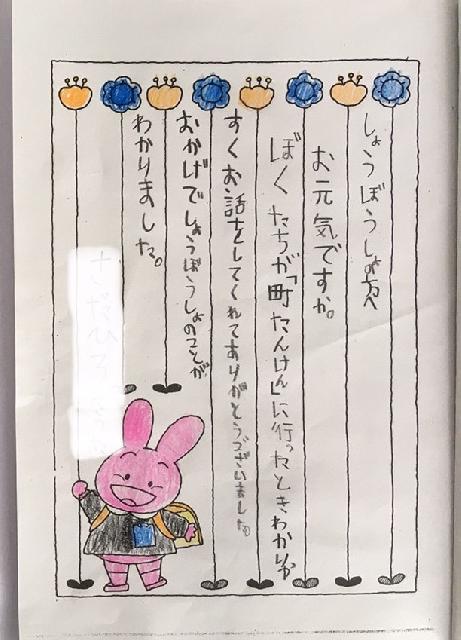 しょうぼうしょの方へ
お元気ですか。
ぼくたちが「町たんけん」に行ったときわかりや
すくお話をしてくれてありがとうございました。
おかげでしょうぼうしょのことが
わかりました。